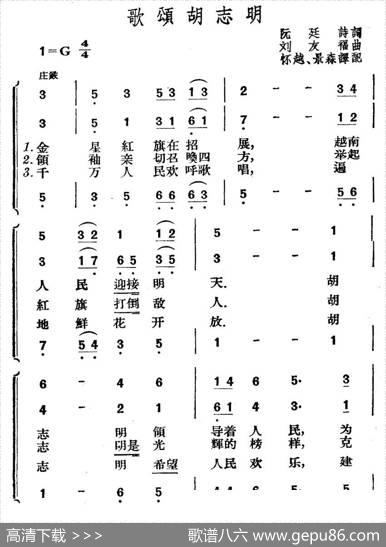 歌頌胡志明
阮廷詩詞
刘友福曲
怀越、景森譯配
1=G 4/4
庄嚴
3 5 3 5 3 1 3 2 - - 3 4
3 3 1 3 1 6 1 7 - - 1 2
1. 金星紅旗在招展, 越南
2. 領袖亲切召喚四方, 举起
3. 千万人民欢呼歌唱, 遍
5 3 5 6 6 6 3 5 - - 5 6
5 3 2 1 1 2 5 - - 1
3 1 7 6 5 3 5 3 - - 1
人民迎接明天. 胡
紅旗打倒敌人. 胡
地鮮花开放. 胡
7 5 4 3 5 1 - - 1
6 - 4 6 1 4 6 5· 3
4 - 2 1 6 1 4 3· 1
志明領导着人民, 为
志明是光輝的榜样, 克
志明希望人民欢乐, 建
1 - 6 5
高清下载 >>>
歌谱八六 -- www.gepu86.com